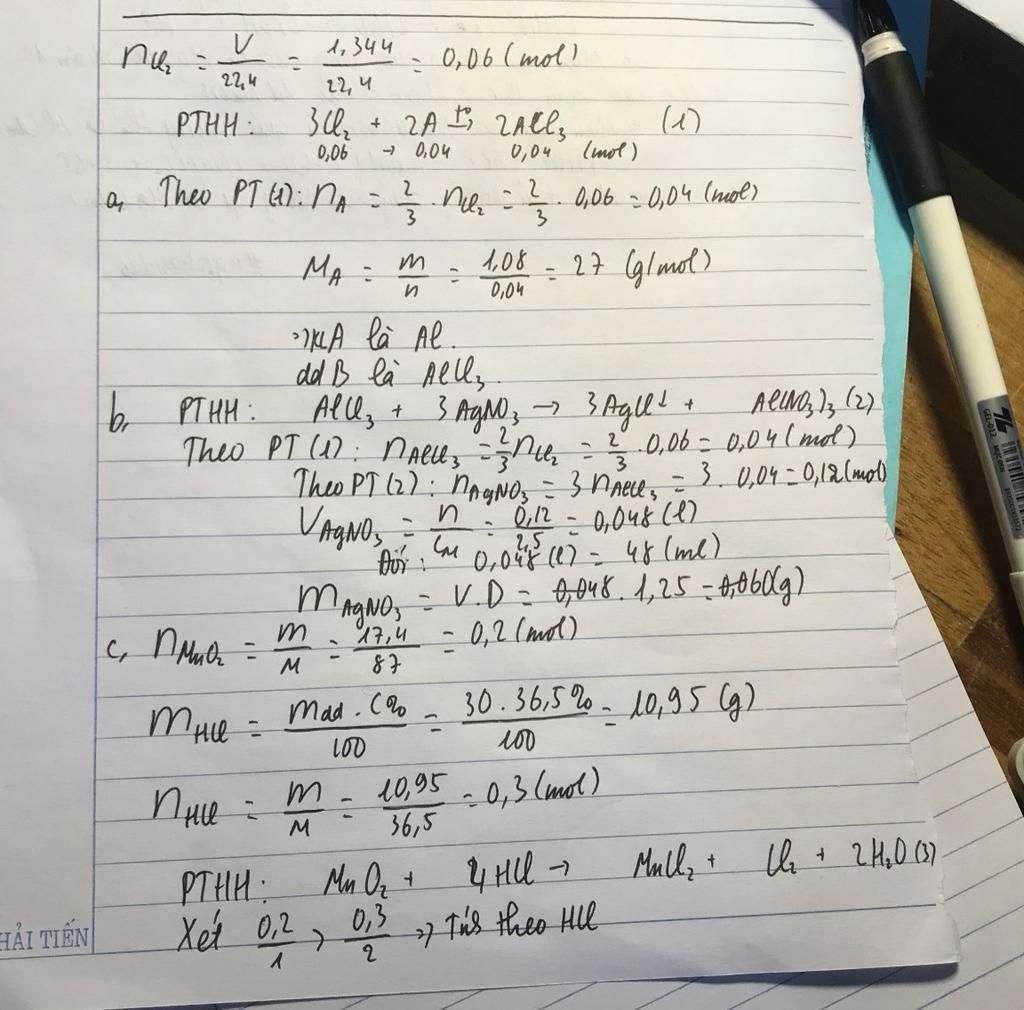 nCl₂ = V/22,4 = 1,344/22,4 = 0,06 (mol)
PTHH: 3Cl₂ + 2A t°→ 2ACl₃ (1)
0,06 → 0,04 0,04 (mol)
a, Theo PT(1): nA = 2/3 . nCl₂ = 2/3 . 0,06 = 0,04 (mol)
MA = m/n = 1,08/0,04 = 27 (g/mol)
=> KL A là Al.
dd B là AlCl₃.
b, PTHH: AlCl₃ + 3AgNO₃ → 3AgCl↓ + Al(NO₃)₃ (2)
Theo PT(1): nAlCl₃ = 2/3 nCl₂ = 2/3 . 0,06 = 0,04 (mol)
Theo PT(2): nAgNO₃ = 3nAlCl₃ = 3 . 0,04 = 0,12 (mol)
VAgNO₃ = n/CM = 0,12/2,5 = 0,048 (l)
Đổi: 0,048 (l) = 48 (ml)
mAgNO₃ = V.D = 0,048 . 1,25 = 0,060(g)
c, nMnO₂ = m/M = 17,4/87 = 0,2 (mol)
mHCl = mdd . C%/100 = 30 . 36,5%/100 = 10,95 (g)
nHCl = m/M = 10,95/36,5 = 0,3 (mol)
PTHH: MnO₂ + 4HCl → MnCl₂ + Cl₂ + 2H₂O (3)
Xét 0,2/1 > 0,3/2 => Tính theo HCl
HẢI TIẾN
GEL-012